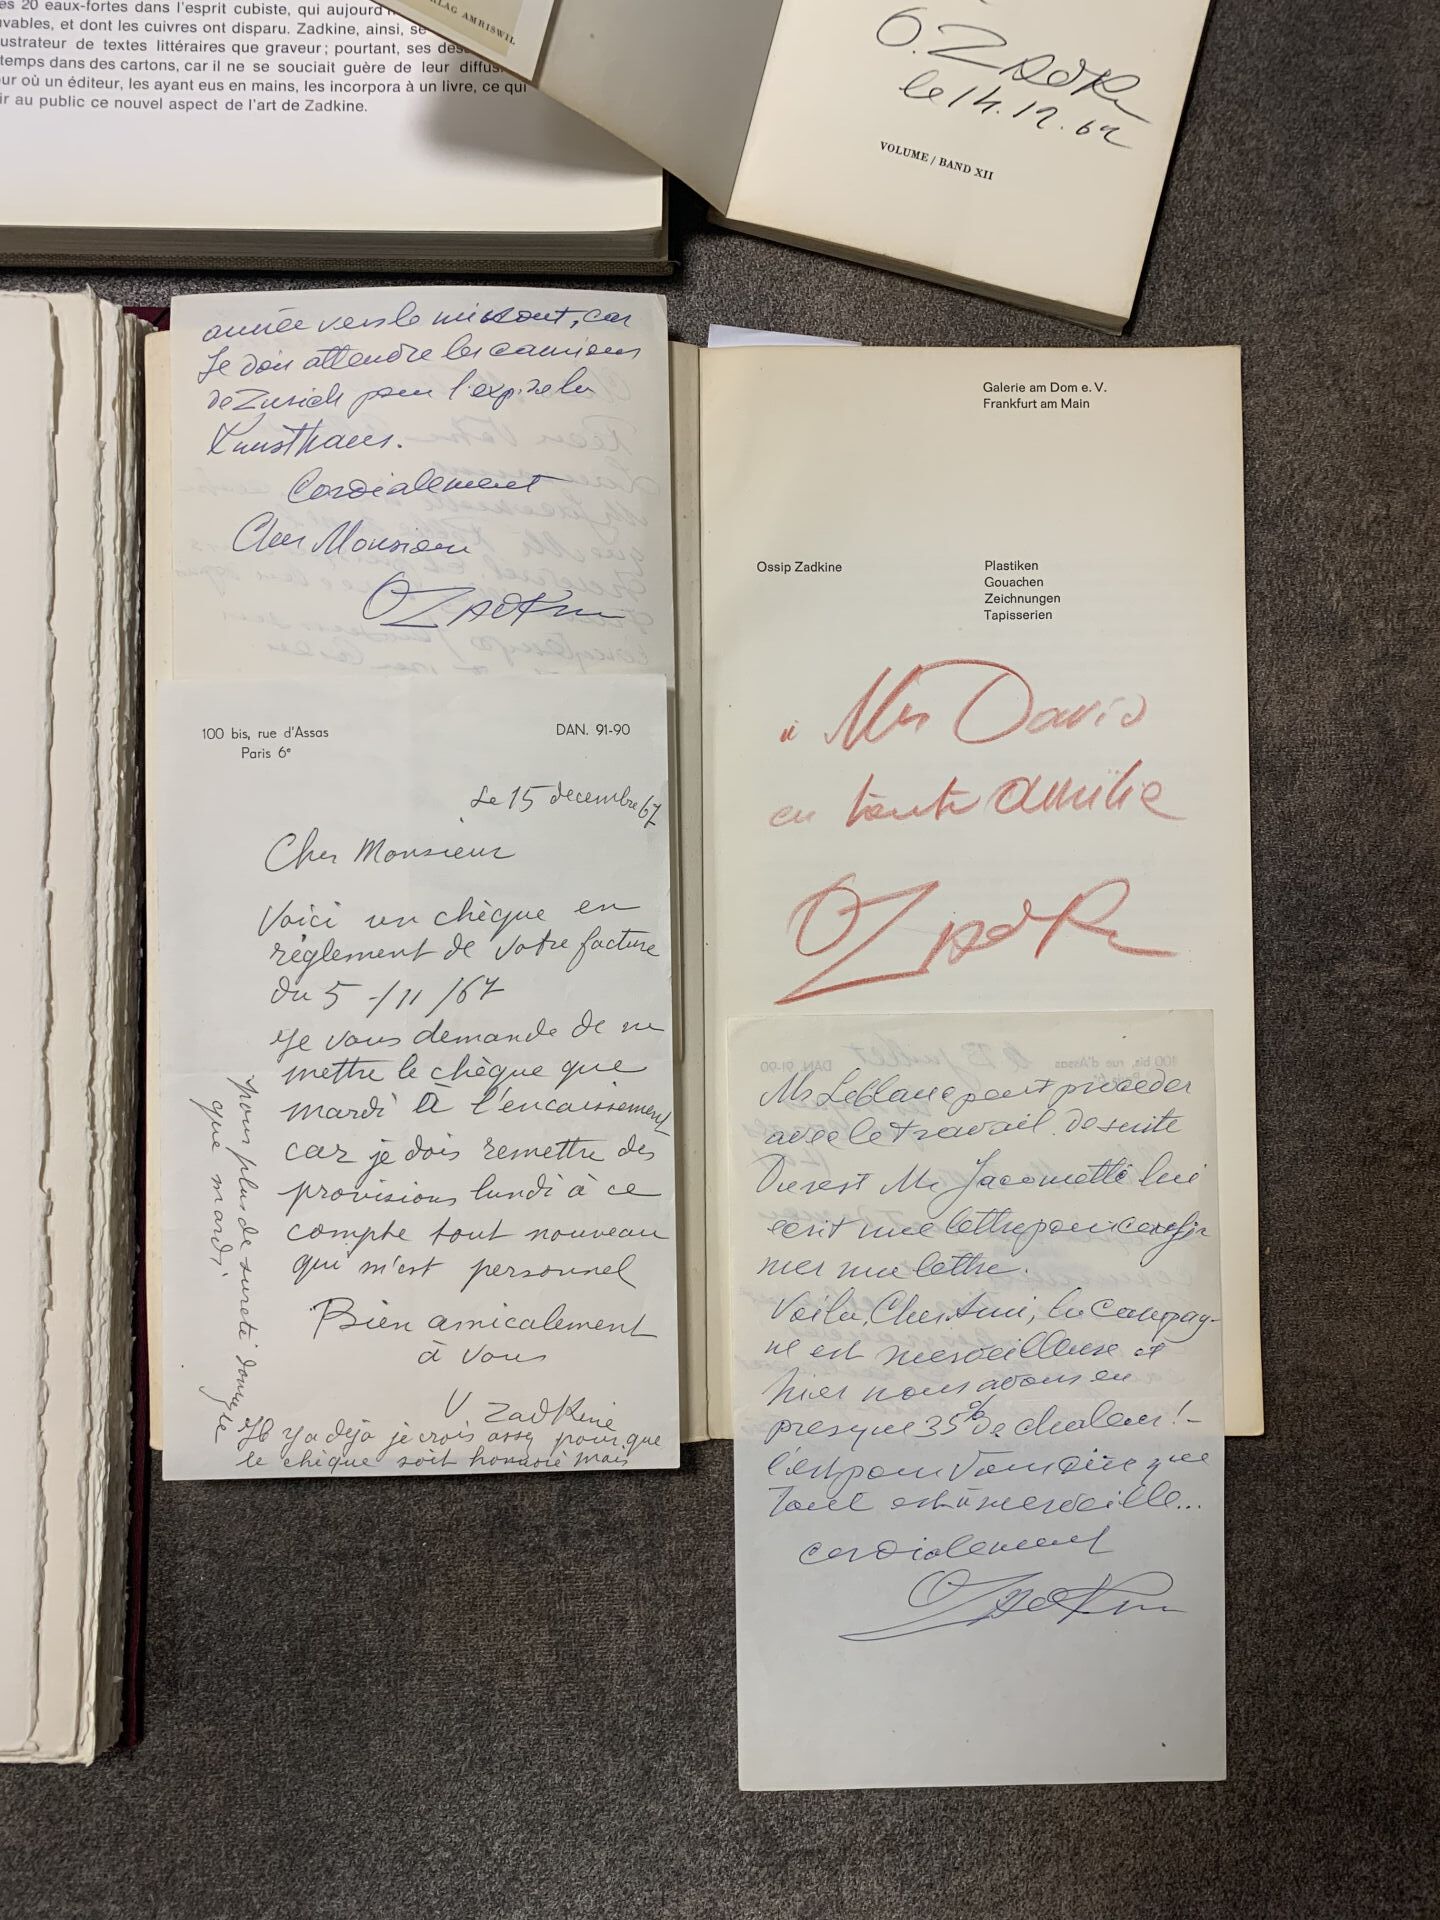 es 20 eaux-fortes dans l'esprit cubiste, qui aujourd'
uvables, et dont les cuivres ont disparu. Zadkine, ainsi, se
ustrateur de textes littéraires que graveur; pourtant, ses des
temps dans des cartons, car il ne se souciait guère de leur diffus
ur où un éditeur, les ayant eus en mains, les incorpora à un livre, ce qui
ir au public ce nouvel aspect de l'art de Zadkine.
RLAG AMRISWIL
O. Zadkine
le 14.12.62
VOLUME / BAND XII
année vers le mi août, car
Je dois attendre les camions
de Zurich pour l'exp. de la
Kunsthaus.
Cordialement
Cher Monsieur
O Zadkine
100 bis, rue d'Assas
Paris 6e
DAN. 91-90
Le 15 decembre 67
Cher Monsieur
Voici un chèque en
règlement de votre facture
du 5 -/11/67
Je vous demande de ne
mettre le chèque que
mardi à l'encaissement
car je dois remettre des
provisions lundi à ce
compte tout nouveau
qui m'est personnel
Bien amicalement
à vous
V. Zadkine
Il y a déjà je crois assez pour que
le chèque soit honoré mais
pour plus de sureté donc
que mardi
Galerie am Dom e. V.
Frankfurt am Main
Ossip Zadkine
Plastiken
Gouachen
Zeichnungen
Tapisserien
à Mr David
en toute amitié
O Zadkine
100 bis, rue d'Assas
DAN. 91-90
juillet
Mr Leblanc peut proceder
avec le travail de suite
Du rest Mr Jacometti lui
ecrit une lettre pour confir
mer ma lettre.
Voila, Cher Ami, la campag-
ne est merveilleuse et
hier nous avons eu
presque 35° de chaleur!-
C'est pour Vous dire que
tout est à merveille...
cordialement
O Zadkine